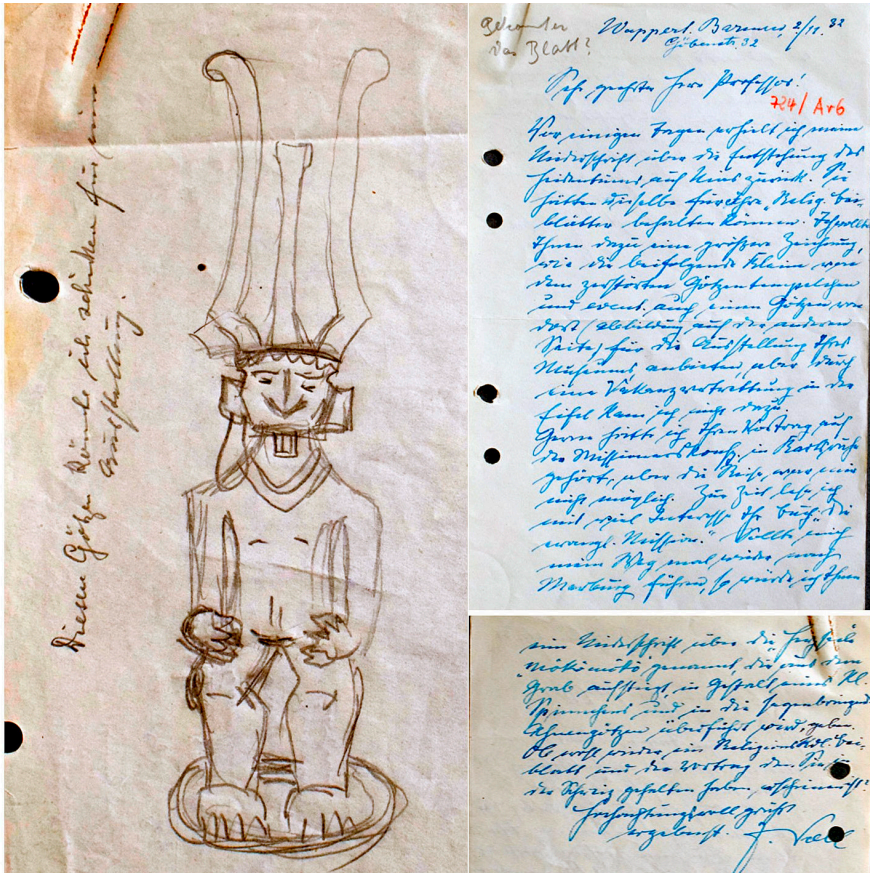 Diesen Götzen könnte ich schenken für eine
Ausstellung.
das Blatt?
Wuppert. Barmen, 2/11. 32
Göbenstr. 32
Sehr geehrter Herr Professor!
724/ Ar6
Vor einigen Tagen erhielt ich meine
Niederschrift über die Entstehung des
Heidentums auf Nias zurück. Sie
hätten dieselbe für Ihre „Relig. bei-
blätter behalten können. Ich wollte
Ihnen dazu eine größere Zeichnung,
wie die beifolgende kleine von
dem zerstörten Götzentempelchen
und event. auch einen Götzen von
dort (Abbildung auf der anderen
Seite) für die Ausstellung Ihres
Museums anbieten, aber durch
eine Vakanzvertretung in der
Eifel kam ich nicht dazu.
Gern hätte ich Ihren Vortrag auf
der Missionskonf. in Karlsruhe
gehört, aber die Reise war mir
nicht möglich. Zur Zeit lese ich
mit viel Interesse Ihr Buch „die
evangl. Mission." Sollte mich
mein Weg mal wieder nach
Marburg führen, so würde ich Ihnen
eine Niederschrift über die Herzseele
"mökömökö" genannt, die aus dem
Grab aufsteigt in Gestalt eines kl.
Spinnchens und in die segenbringend
Ahnengötzen überführt wird, geben.
Ob wohl wieder ein bei-
blatt und der Vortrag den Sie in
der Schweiz gehalten haben, erschienen ist?
Hochachtungsvoll grüßt
ergebenst. F.